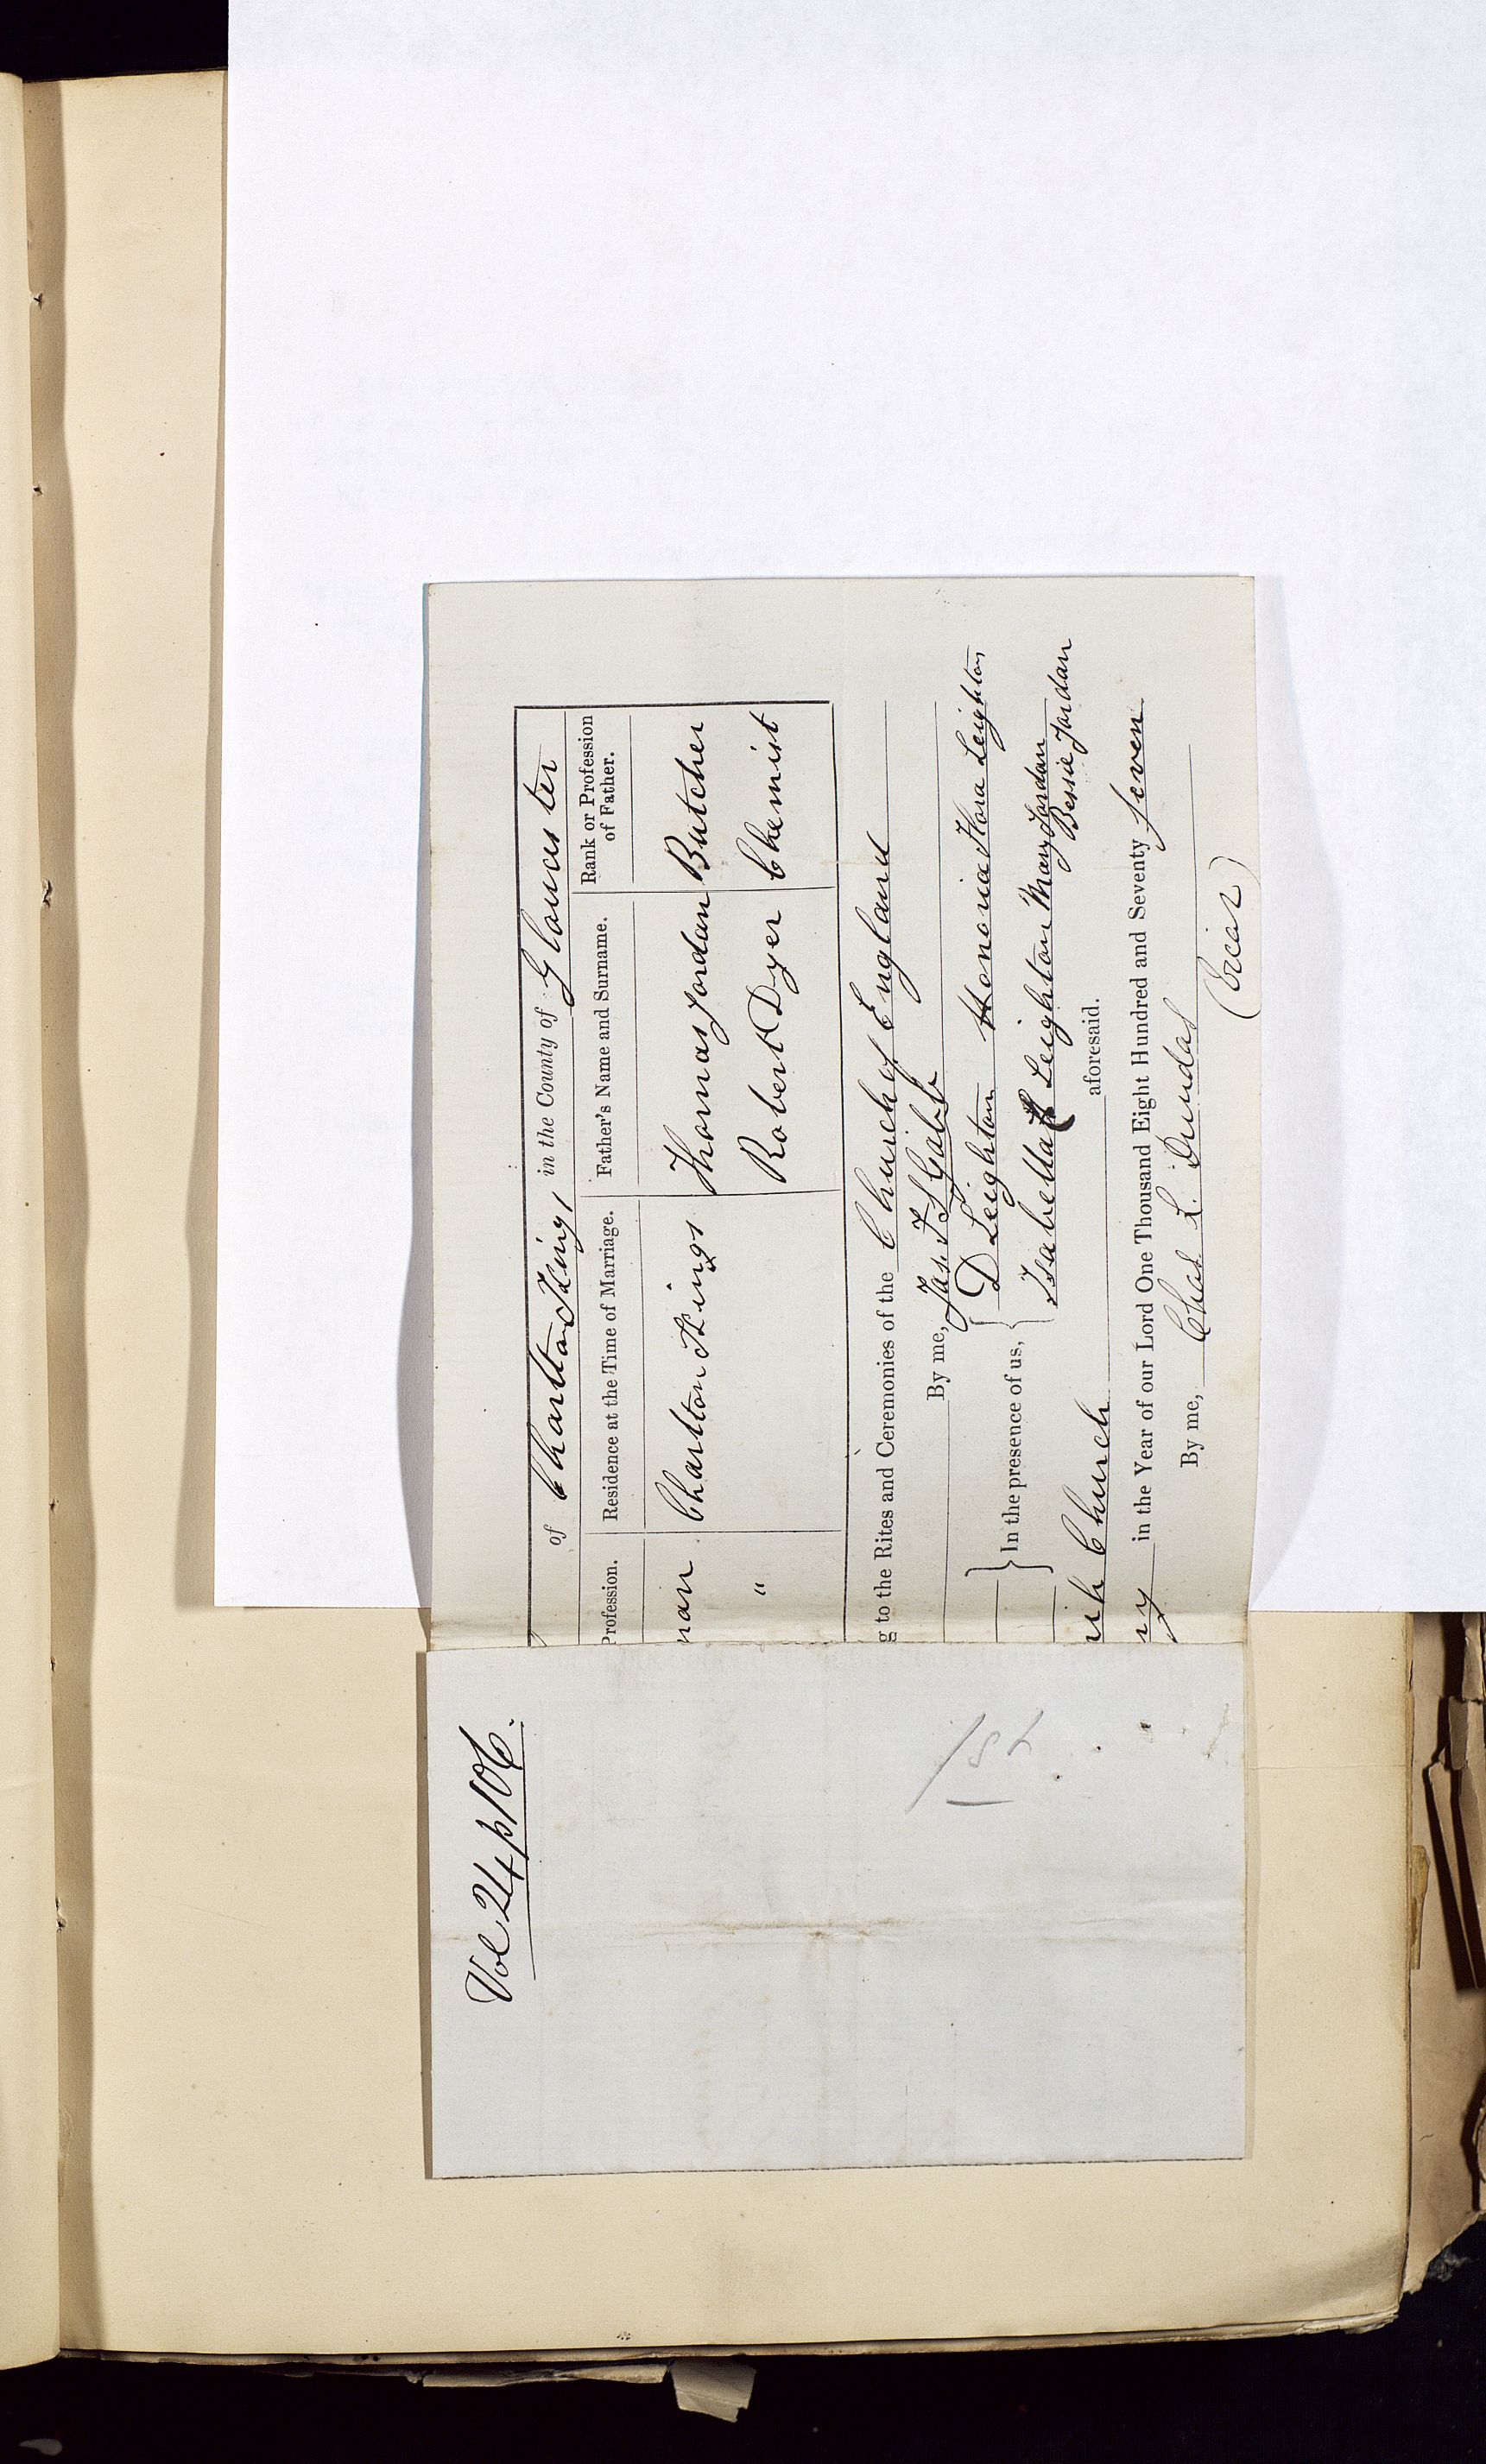 Vol 24 p 106.
of Charlton Kings, in the County of Gloucester
Profession. Residence at the Time of Marriage. Father's Name and Surname. Rank or Profession of Father.
man Charlton Kings Thomas Jordan Butcher
" Robert Dyer Chemist
g to the Rites and Ceremonies of the Church of England
By me, Jas F S Gabb
In the presence of us, D Leighton Honoria Flora Leighton
Isabella Leighton Mary Jordan
Bessie Jordan
ish Church aforesaid.
ry in the Year of our Lord One Thousand Eight Hundred and Seventy seven
By me, Chas L. Dundas
(Vicar)